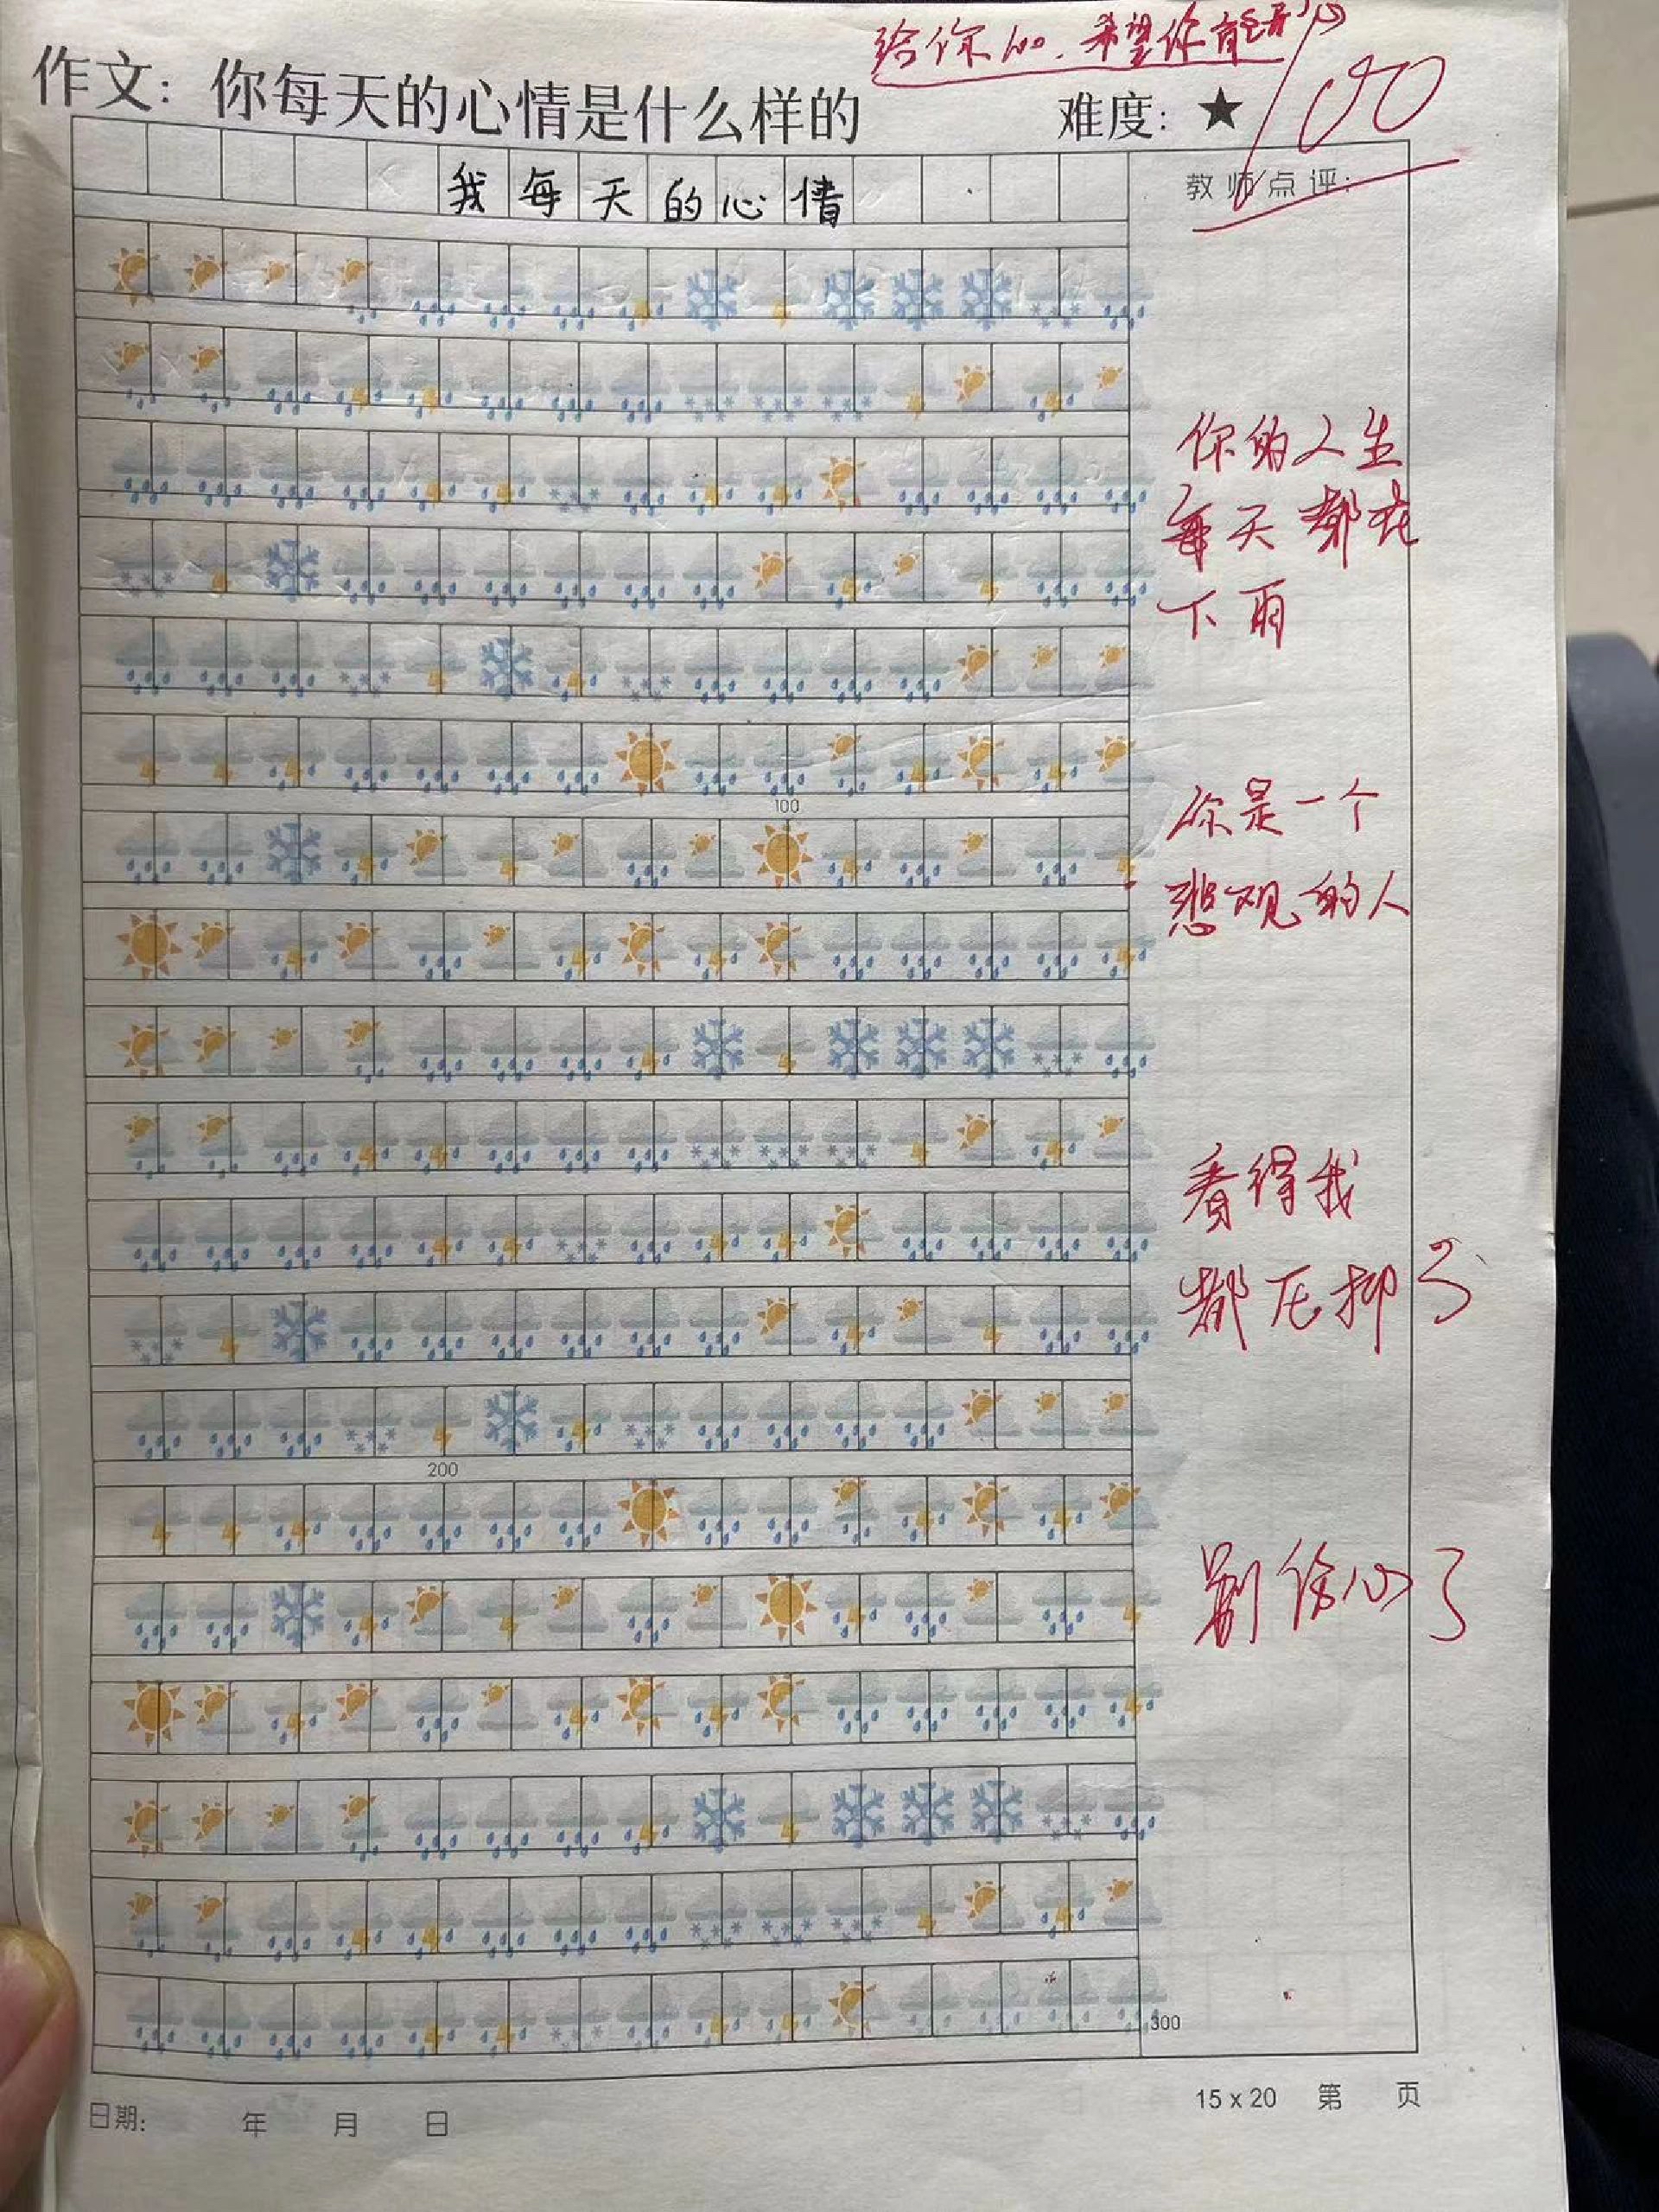 给你100.希望你有点开心
作文：你每天的心情是什么样的
难度：★
100
我每天的心情
教师点评：
你的人生
每天都在
下雨
100
你是一个
悲观的人
看得我
都压抑了
200
别伤心了
300
15 x 20 第 页
日期： 年 月 日